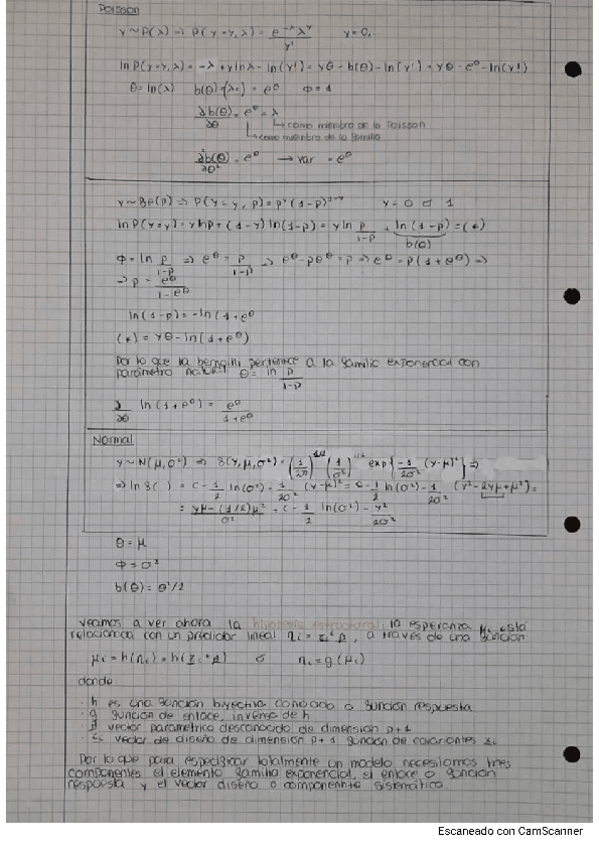 Poisson
Y~P(λ) => P(Y=y,λ) = e^-λ λ^y / y!    y=0,...
ln P(Y=y,λ) = -λ + y ln λ - ln(y!) = yθ - b(θ) - ln(y!) = yθ - e^θ - ln(y!)
θ = ln(λ)    b(θ) = e^θ    Φ = 1
∂b(θ)/∂θ = e^θ = λ
como miembro de la Poisson
como miembro de la familia
∂²b(θ)/∂θ² = e^θ → var = e^θ
Y~Be(p) => P(Y=y, p) = p^y (1-p)^1-y    y = 0 o 1
ln P(Y=y) = y ln p + (1-y) ln(1-p) = y ln p/1-p + ln(1-p) = (*)
b(θ)
Φ = ln p/1-p => e^θ = p/1-p => e^θ - pe^θ = p => e^θ = p(1+e^θ) =>
=> p = e^θ/1-e^θ
ln(1-p) = -ln(1+e^θ
(*) = yθ - ln(1+e^θ)
Por lo que la pertenece a la familia exponencial con
parámetro natural θ = ln p/1-p
∂/∂θ ln(1+e^θ) = e^θ/1+e^θ
Normal
Y~N(μ,σ²) => f(y,μ,σ²) = (1/2π)^1/2 (1/σ²)^1/2 exp{-1/2σ² (y-μ)²} =>
=> ln f( ) = c - 1/2 ln(σ²) - 1/2σ² (y-μ)² = c - 1/2 ln(σ²) - 1/2σ² (y²-2yμ+μ²) =
= yμ-(1/2)μ²/σ² + c - 1/2 ln(σ²) - y²/2σ²
θ = μ
Φ = σ²
b(θ) = θ²/2
veamos a ver ahora la hipótesis estructural, la esperanza μi está
relacionada con un predictor lineal ηi = zi'β, a través de una función
μi = h(ηi) = h(zi'β)    o    ηi = g(μi)
donde
· h es una función biyectiva conocida o función respuesta
· g función de enlace, inversa de h
· β vector paramétrico desconocido de dimensión p+1
· zi vector de diseño de dimensión p+1 función de covariantes xi
Por lo que para especificar totalmente un modelo necesitamos tres
componentes el elemento familia exponencial, el enlace o función
respuesta y el vector diseño o componente sistemático.
Escaneado con CamScanner